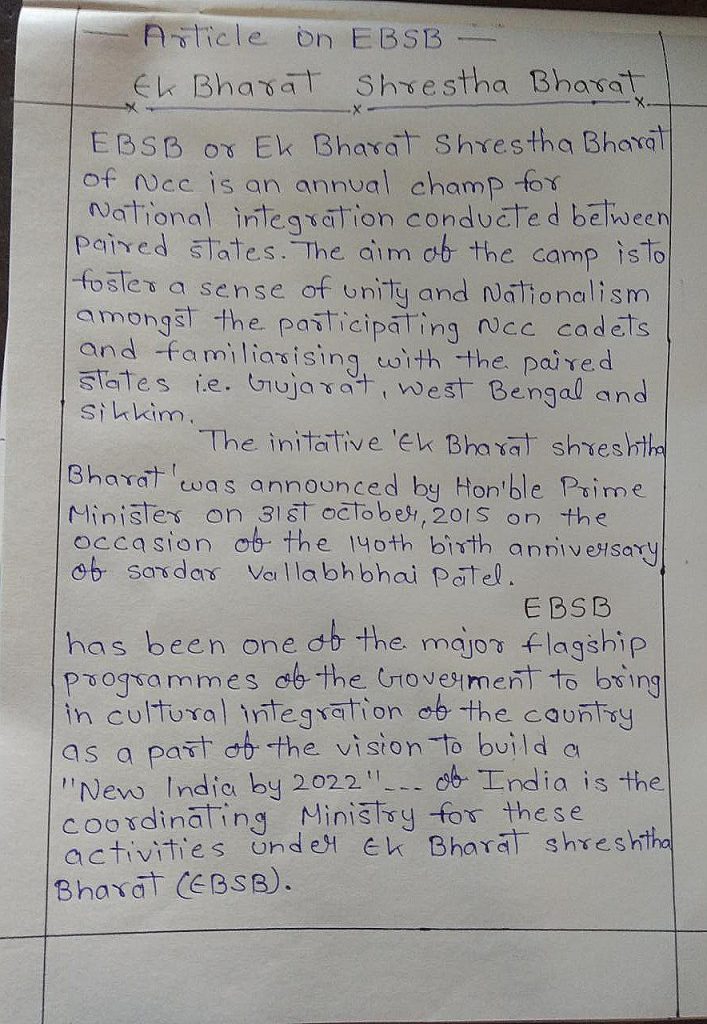 — Article on EBSB —
Ek Bharat Shrestha Bharat
EBSB or Ek Bharat Shrestha Bharat
of Ncc is an annual champ for
National integration conducted between
paired states. The aim of the camp is to
foster a sense of unity and Nationalism
amongst the participating Ncc cadets
and familiarising with the paired
states i.e. Gujarat, West Bengal and
Sikkim.
The initative 'Ek Bharat shreshtha
Bharat' was announced by Hon'ble Prime
Minister on 31st october, 2015 on the
occasion of the 140th birth anniversary
of sardar Vallabhbhai Patel.
EBSB
has been one of the major flagship
programmes of the Goverment to bring
in cultural integration of the country
as a part of the vision to build a
"New India by 2022"--- of India is the
coordinating Ministry for these
activities under Ek Bharat shreshtha
Bharat (EBSB).